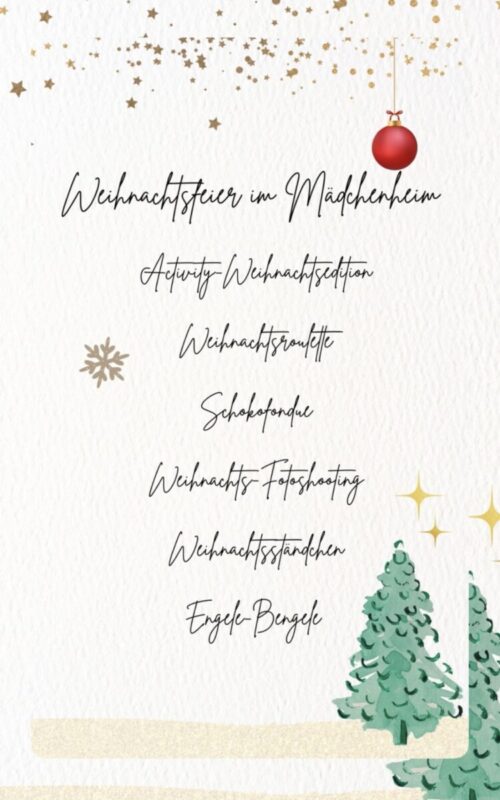 Weihnachtsfeier im Mädchenheim
Activity-Weihnachtsedition
Weihnachtsroulette
Schokofondue
Weihnachts-Fotoshooting
Weihnachtsständchen
Engele-Bengele